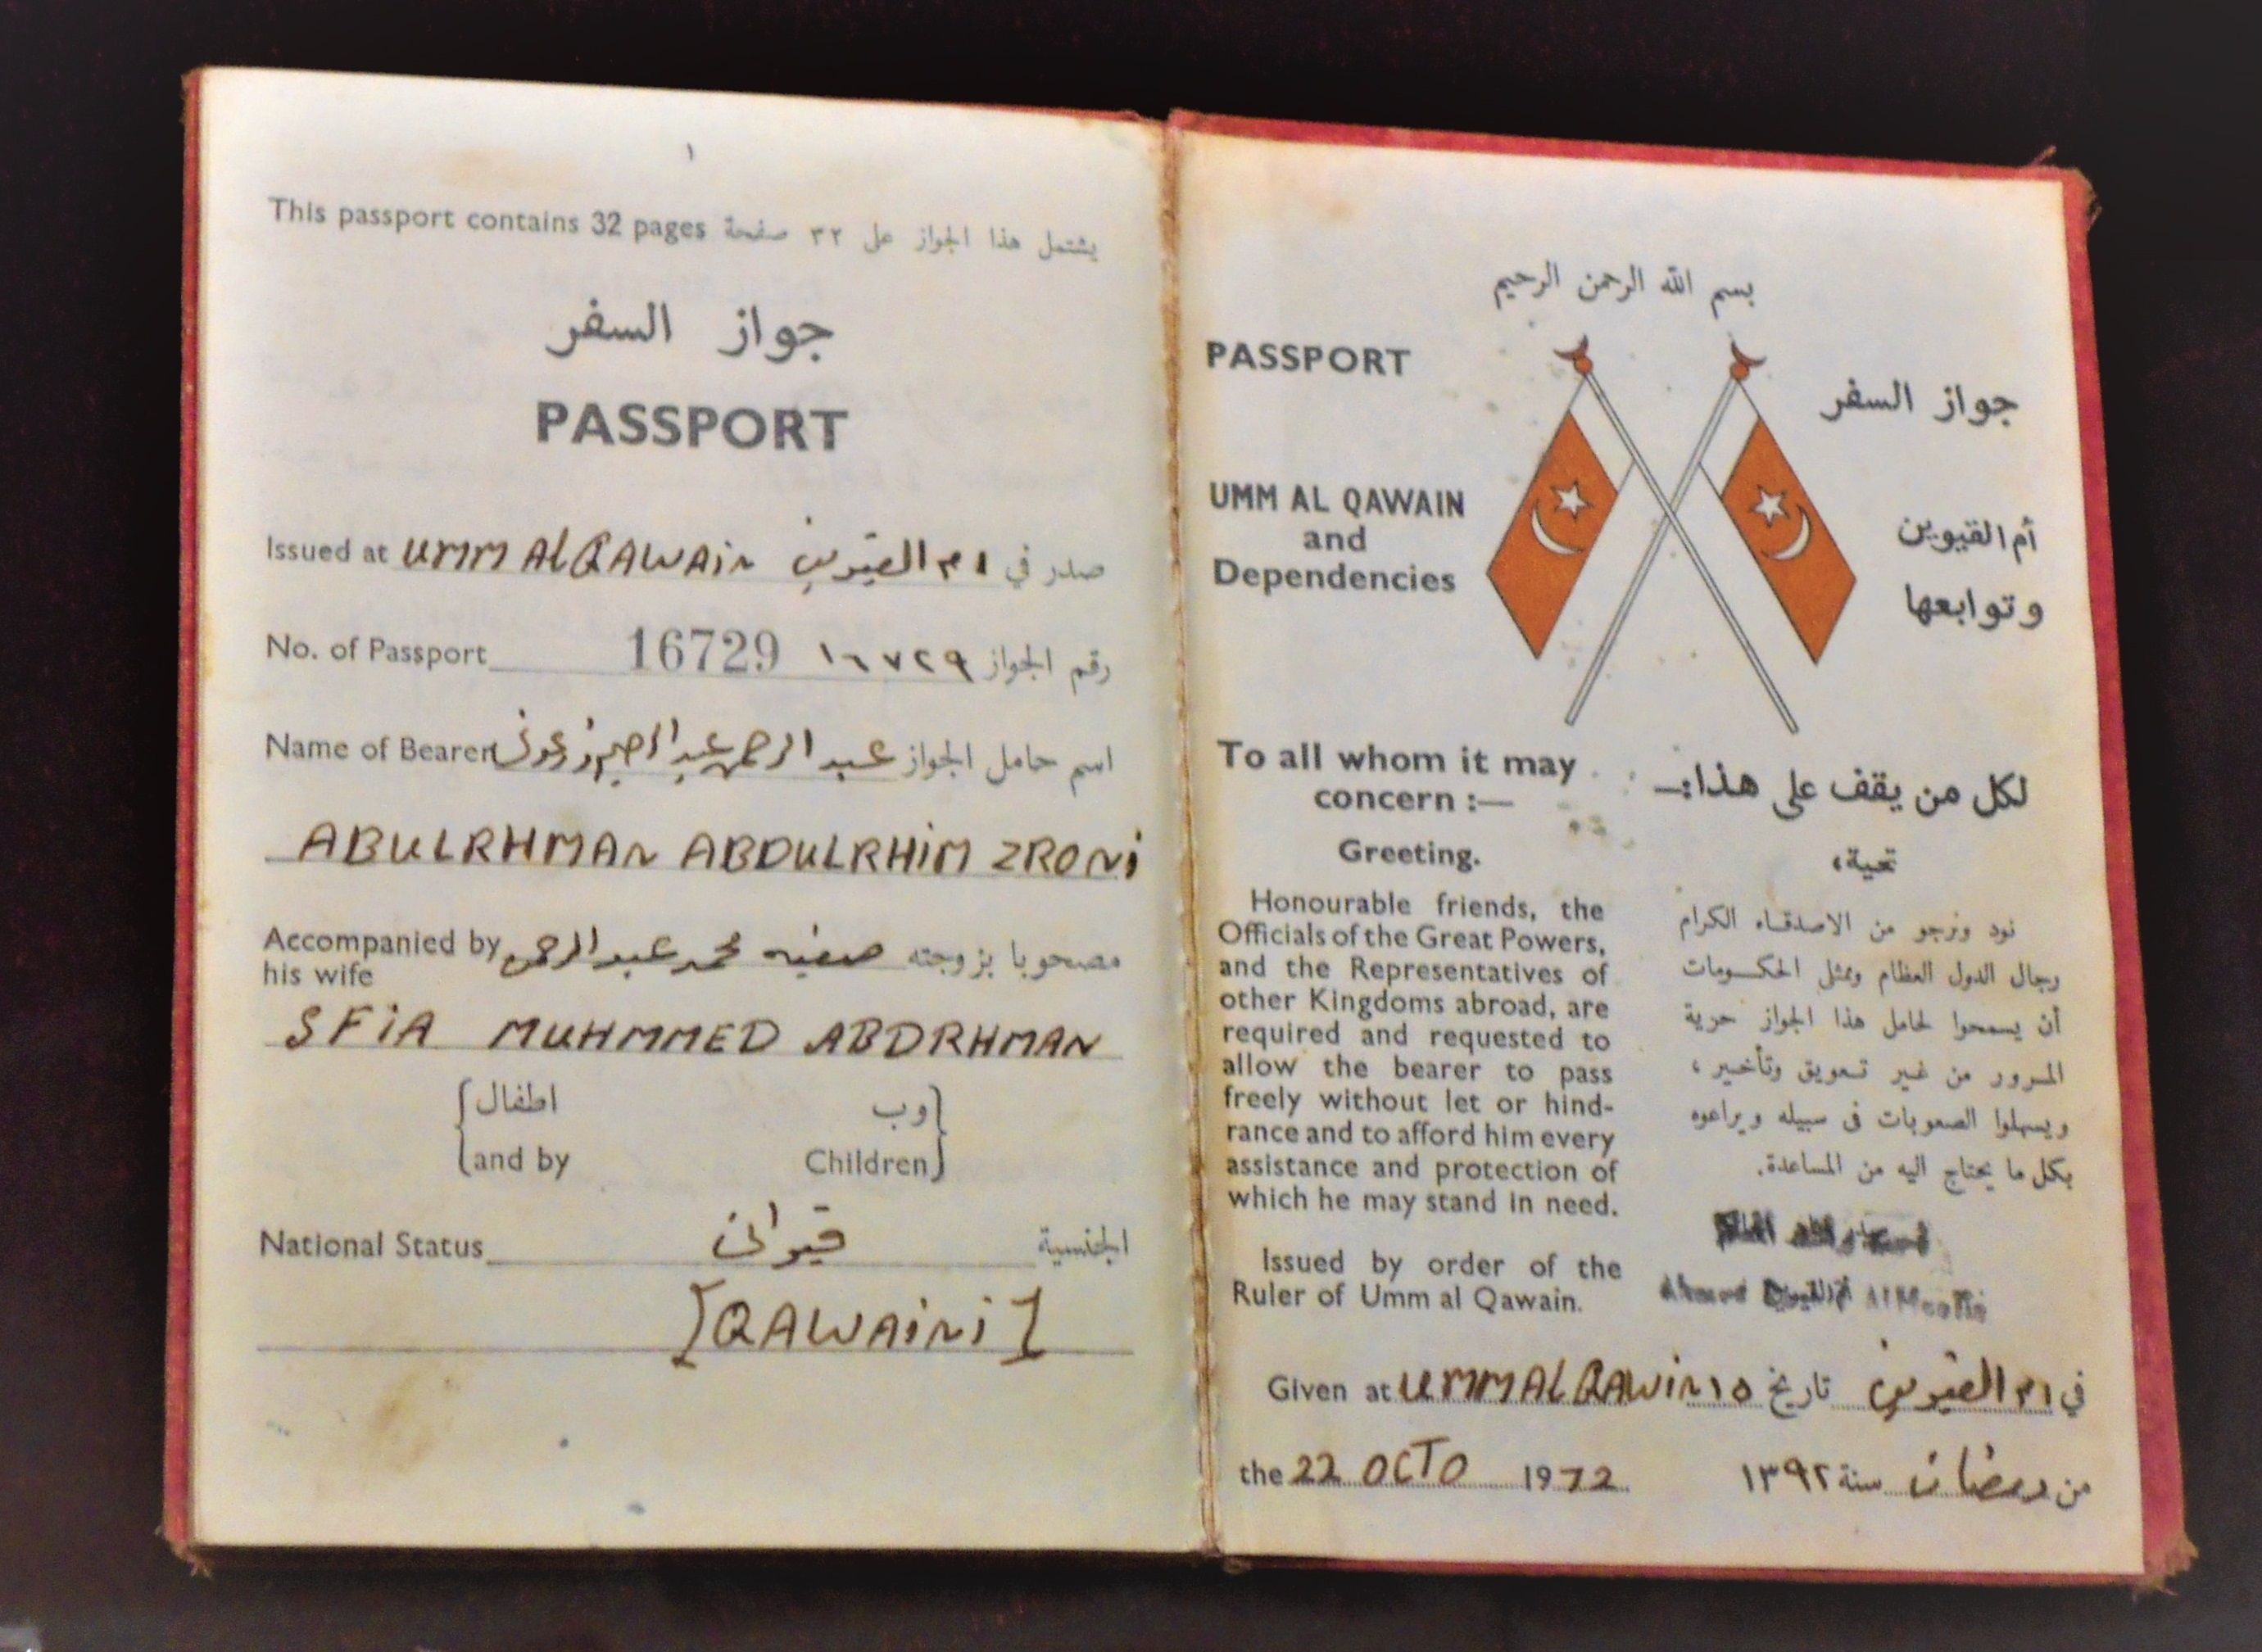 ١
This passport contains 32 pages يشتمل هذا الجواز على ٣٢ صفحة
جواز السفر
PASSPORT
Issued at UMM AlQAWAiN صدر في ام القيوين
No. of Passport 16729 رقم الجواز ١٦٧٢٩
Name of Bearer اسم حامل الجواز عبد الرحمن عبد الرحيم زرعوني
ABULRHMAN ABDULRHiM ZRONi
Accompanied by مصحوبا بزوجته صفيه محمد عبد الرحمن
his wife
SFiA MUHMMED ABDRHMAN
وب اطفال
and by Children
National Status الجنسية قيواني
[QAWAiNi]
بسم الله الرحمن الرحيم
PASSPORT
جواز السفر
UMM AL QAWAIN
and
Dependencies
أم القيوين
وتوابعها
To all whom it may
concern :—
Greeting.
Honourable friends, the
Officials of the Great Powers,
and the Representatives of
other Kingdoms abroad, are
required and requested to
allow the bearer to pass
freely without let or hind-
rance and to afford him every
assistance and protection of
which he may stand in need.
Issued by order of the
Ruler of Umm al Qawain.
لكل من يقف على هذا:—
تحية،
نود ونرجو من الاصدقاء الكرام
رجال الدول العظام وممثل الحكومات
أن يسمحوا لحامل هذا الجواز حرية
المرور من غير تعويق وتأخير،
ويسهلوا الصعوبات فى سبيله ويراعوه
بكل ما يحتاج اليه من المساعدة.
Given at UMMAlQAWiN في ام القيوين تاريخ ١٥
the 22 OCTO 1972 من رمضان سنة ١٣٩٢